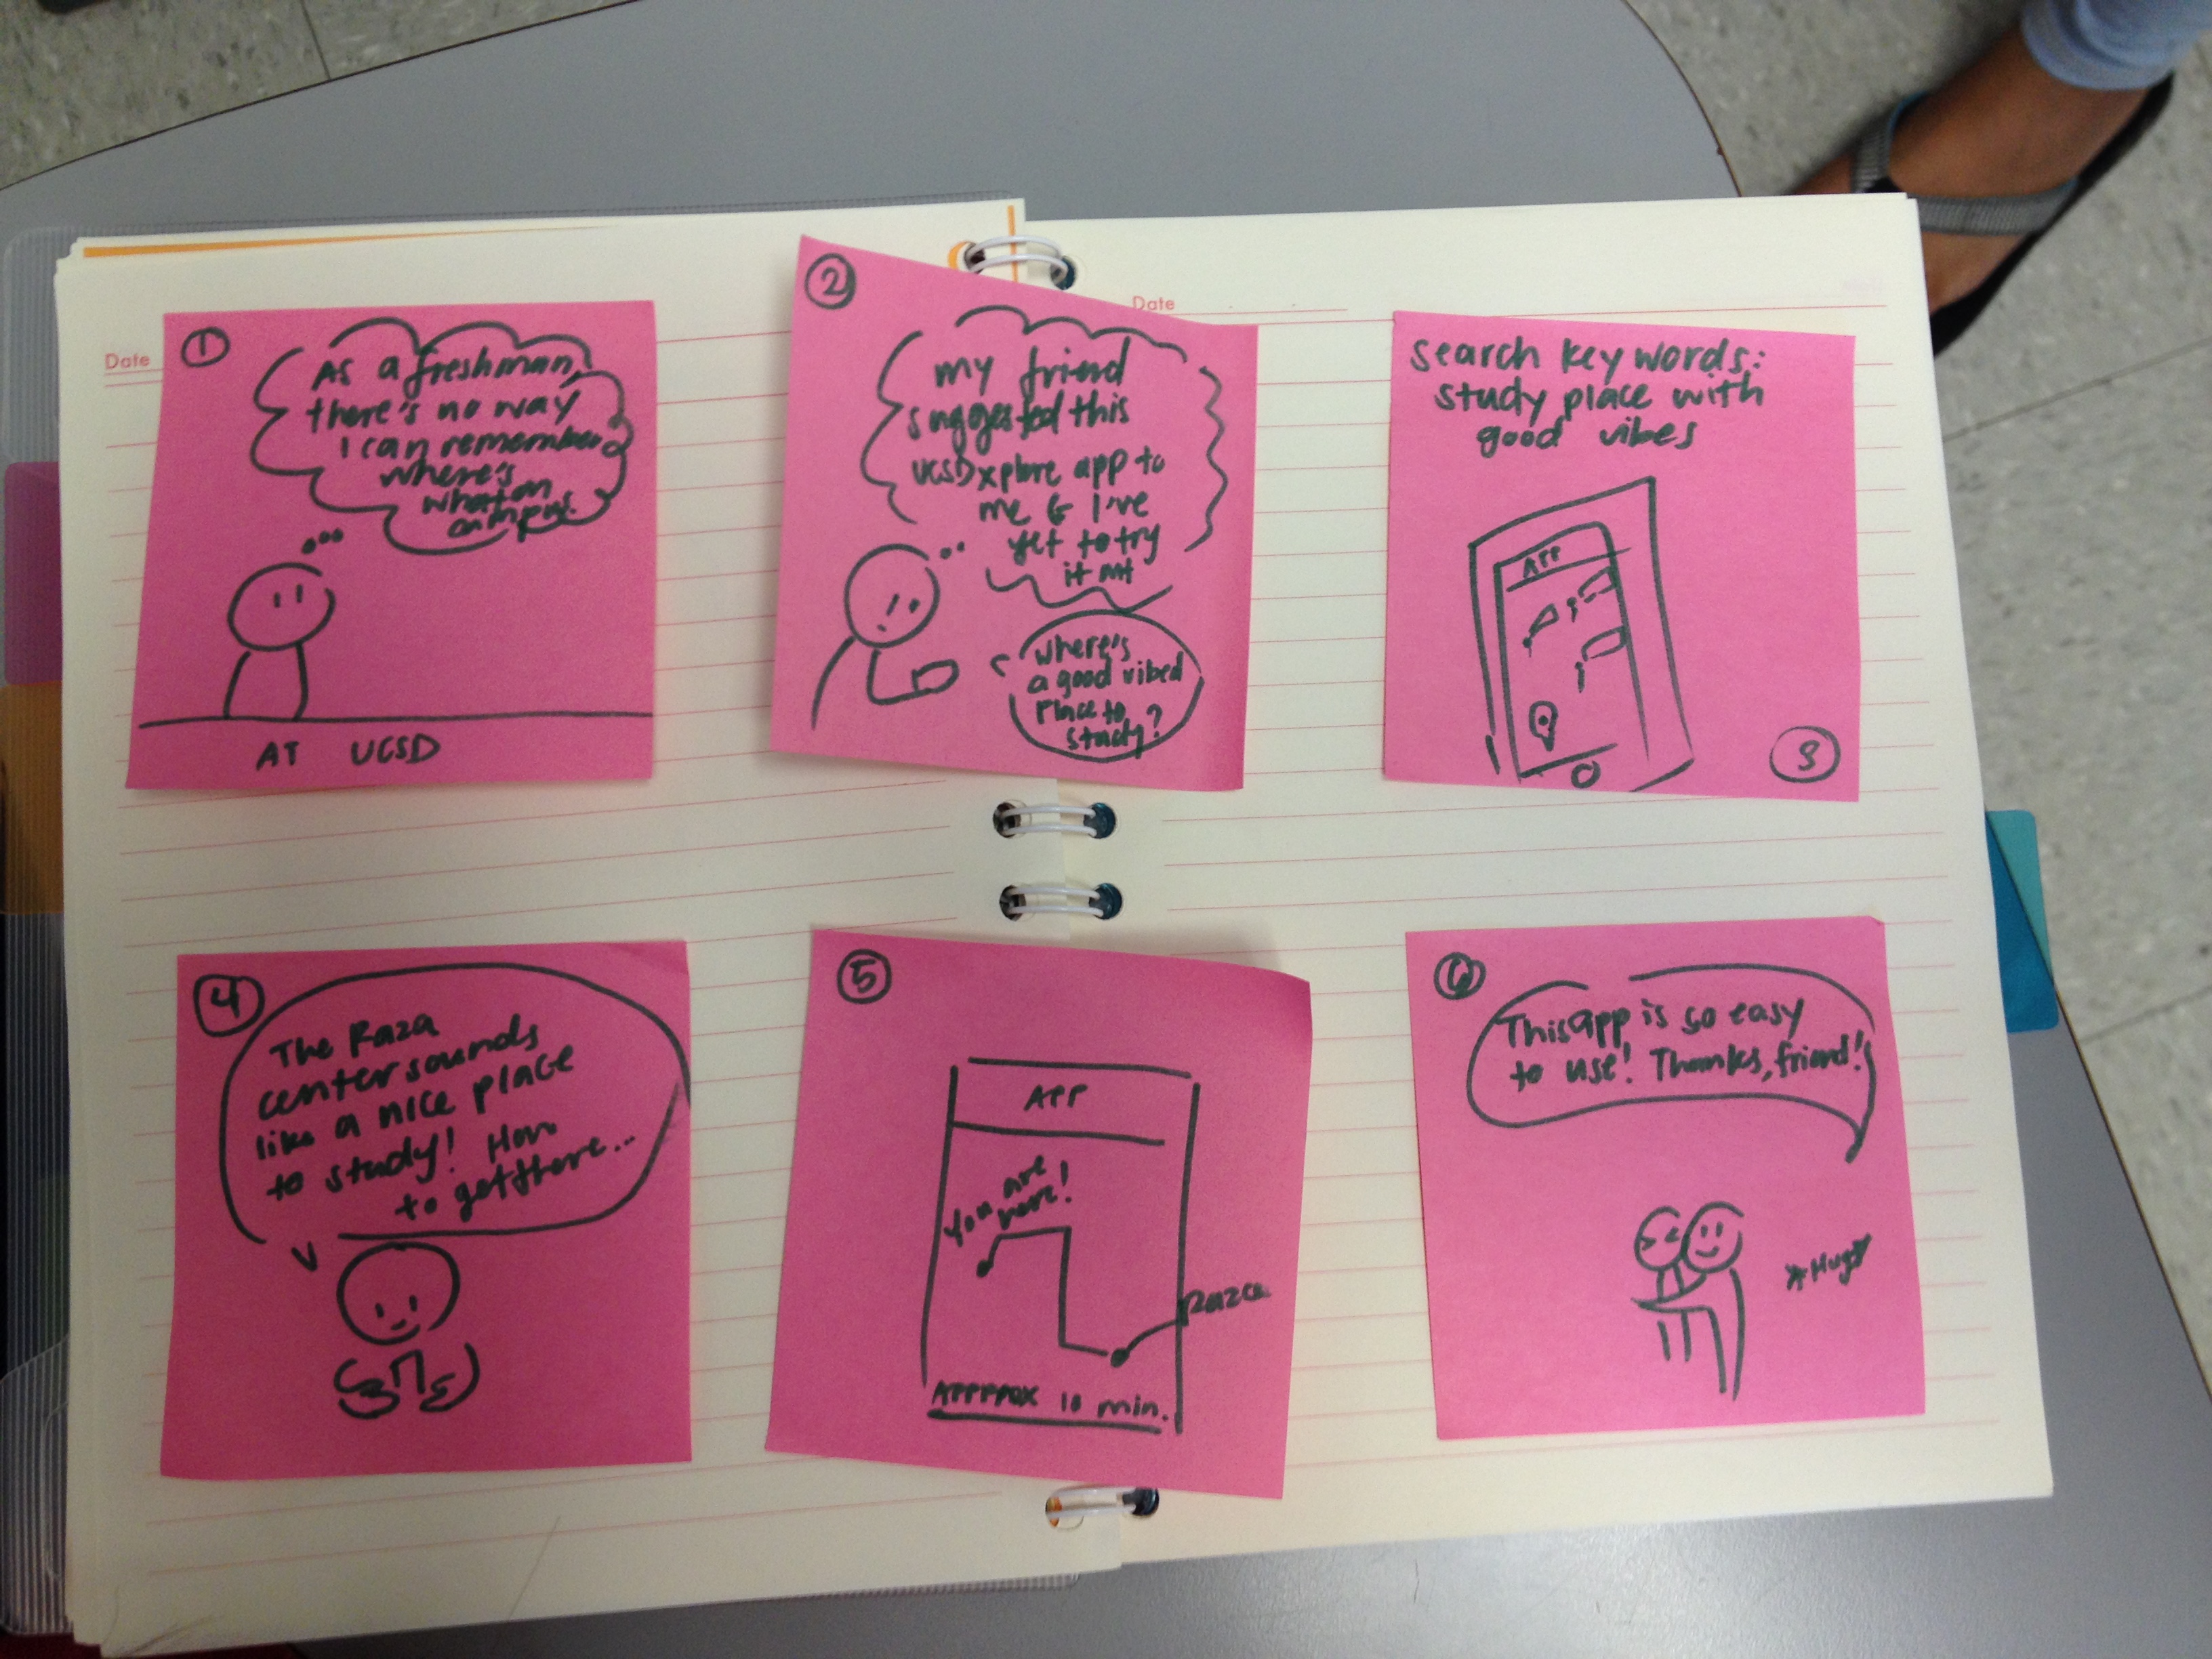 Date
①
As a freshman,
there's no way
I can remember
where's
what on
campus
AT UCSD
Date
②
my friend
suggested this
UCSD xplore app to
me & I've
yet to try
it out
"Where's
a good vibed
place to
study?
Search key words:
study place with
good vibes
APP
3
④
The Raza
center sounds
like a nice place
to study! How
to get there...
⑤
APP
You are
here!
Raza
APPROX 10 min.
⑥
This app is so easy
to use! Thanks, friend!
*Hugs*